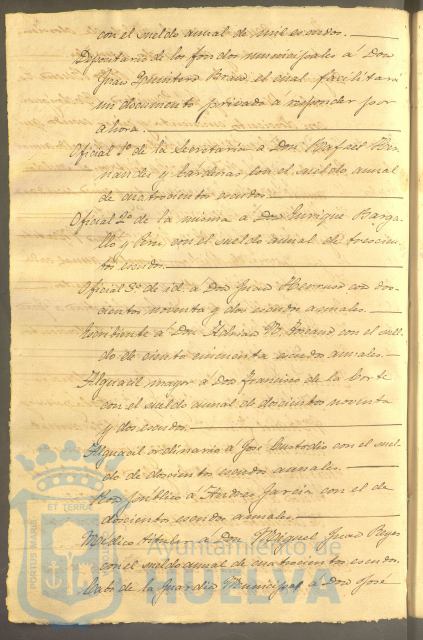 con el sueldo anual de mil escudos.
Depositario de los fondos municipales á Don
Juan Quintero Brau el cual facilitará
un documento privado a responder por
ahora.
Oficial 1º de la Secretaria a Don Rafael Her
nandez y Cárdenas con el sueldo anual
de cuatrocientos escudos.
Oficial 2º de la misma a Don Enrique Barga
lló y con el sueldo anual de trescien
tos escudos.
Oficial 3º de id. a Don Juan Herrera con dos
cientos noventa y dos escudos anuales.
Escribiente a Don Adrian M. con el suel
do de ciento cincuenta escudos anuales.
Alguacil mayor á Don Francisco de la Corte
con el sueldo anual de doscientos noventa
y dos escudos.
Alguacil ordinario á José Custodio con el suel
do de doscientos escudos anuales.
público á Andres Garcia con el de
doscientos escudos anuales.
Médico titular á Don Miguel Juan Reyes
con el sueldo anual de cuatrocientos escudos.
Cabo de la Guardia Municipal á Don José
PORTUS MARIS
ET TERRAE
Ayuntamiento de
HUELVA